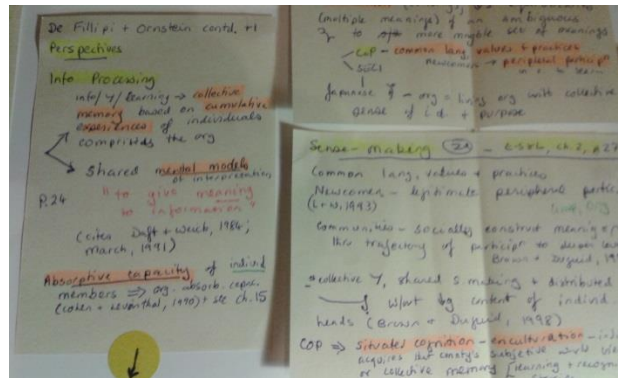 De Fillipi + Ornstein contd. +1
Perspectives
Info Processing
info/ y/ learning → collective
memory based on cumulative
experiences of individuals
comprising the org
shared mental models
of interpretation
P.24
"to give meaning
to information"
(cites Daft + Weick, 1984;
March, 1991)
Absorptive capacity of individ
members ⇒ org. absorb. capac.
(Cohen + Levinthal, 1990) + see ch. 15
(multiple meanings) of an ambiguous
to more tangible set of meanings
COP - common lang, values + practices
newcomers → peripheral particip
Japanese - org = living org with collective
sense of i.d. + purpose
Sense-making 24 - Ch. 2, p27
Common lang, values + practices
Newcomers - legitimate peripheral partic
(L+W, 1993)
Communities - socially construct meaning
thru trajectory of particip to
Brown + Duguid, 19
collective y, shared s.making + distributed
content of individ.
heads (Brown + Duguid, 1998)
COP ⇒ situated cognition - enculturation - indi
acquires
or collective memory